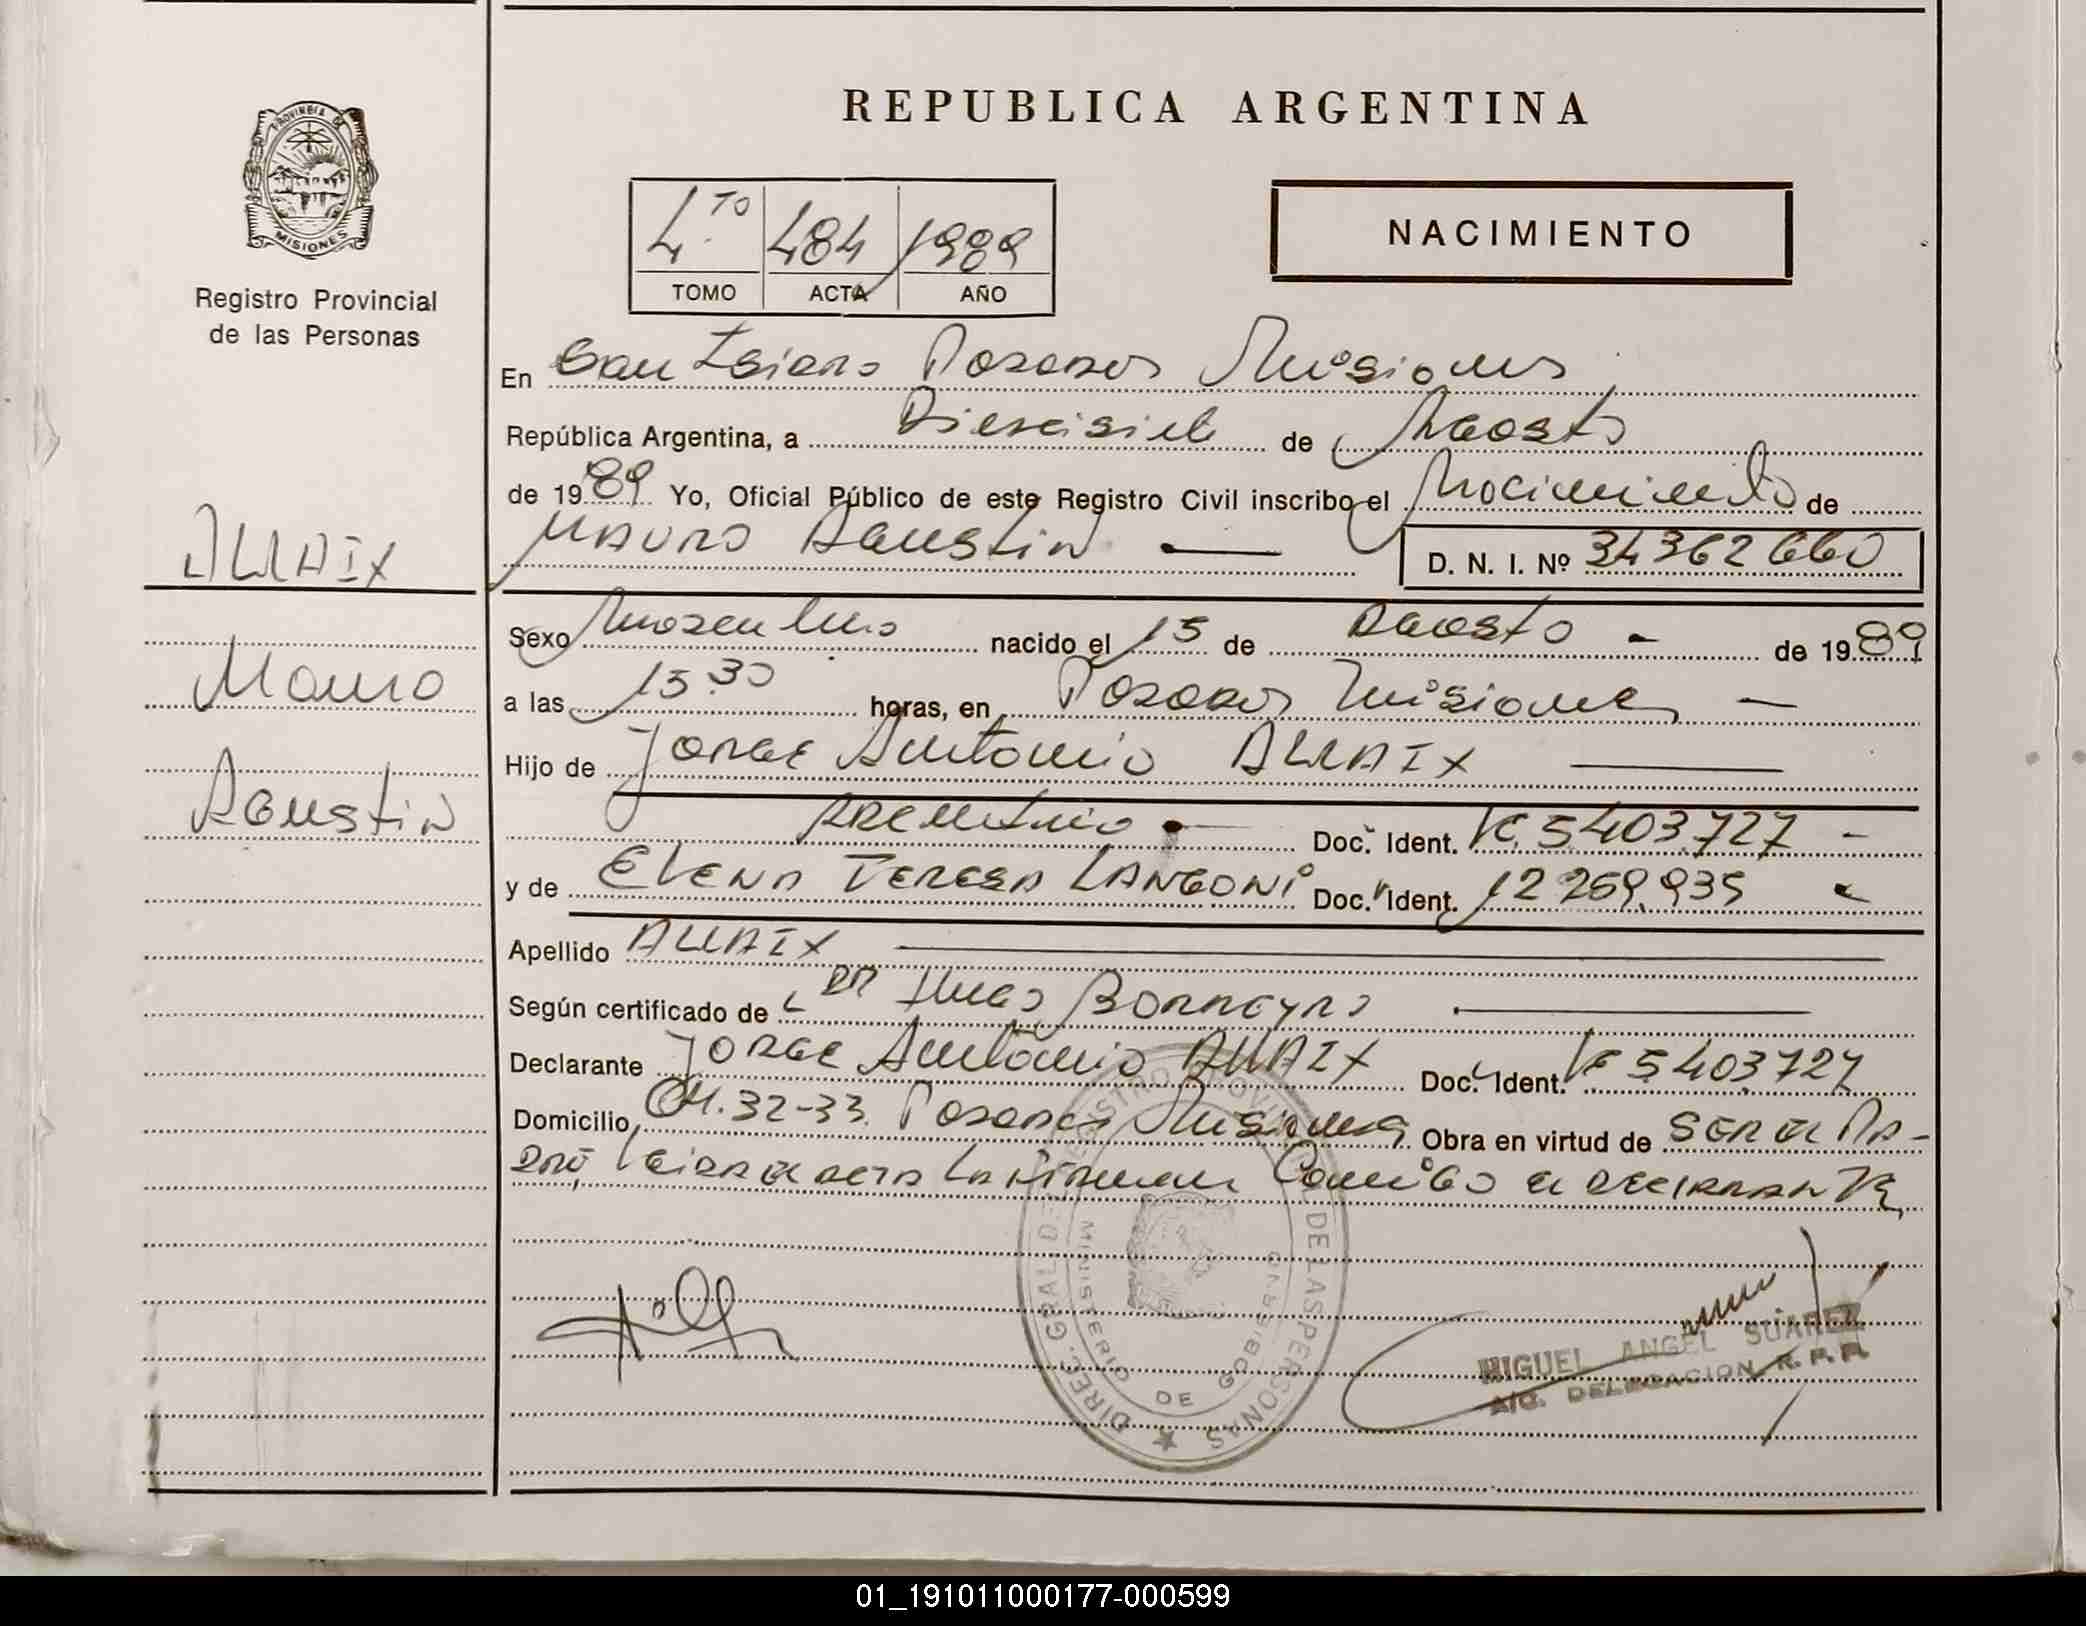 REPUBLICA ARGENTINA
PROVINCIA DE
MISIONES
Registro Provincial
de las Personas
4.TO 484 1989
TOMO ACTA AÑO
NACIMIENTO
En San Isidro Posadas Misiones
República Argentina, a Diescisiete de Agosto
de 1989 Yo, Oficial Público de este Registro Civil inscribo el Nacimiento de
MAURO AGUSTIN —
D. N. I. Nº 34362660
ALLAIX
Mauro
Agustin
Sexo Masculino nacido el 15 de Agosto - de 1989
a las 15.30 horas, en Posadas Misiones —
Hijo de Jorge Antonio ALLAIX —
Argentino — Doc. Ident. 5403.727 -
y de ELENA TERESA LANGONI Doc. Ident. 12 269.935
Apellido ALLAIX —
Según certificado de DR Hugo BORREYRO —
Declarante Jorge Antonio ALLAIX Doc. Ident. 5403.727
Domicilio CH. 32-33. Posadas Misiones Obra en virtud de SER EL PA-
DRE, Leida el acta la firman Conmigo el DECLARANTE
DIREC. GRAL DEL REGISTRO PROVINCIAL DE LAS PERSONAS
MINISTERIO DE GOBIERNO
MIGUEL ANGEL SUAREZ
A/C. DELEGACION R. P. P.
01_191011000177-000599